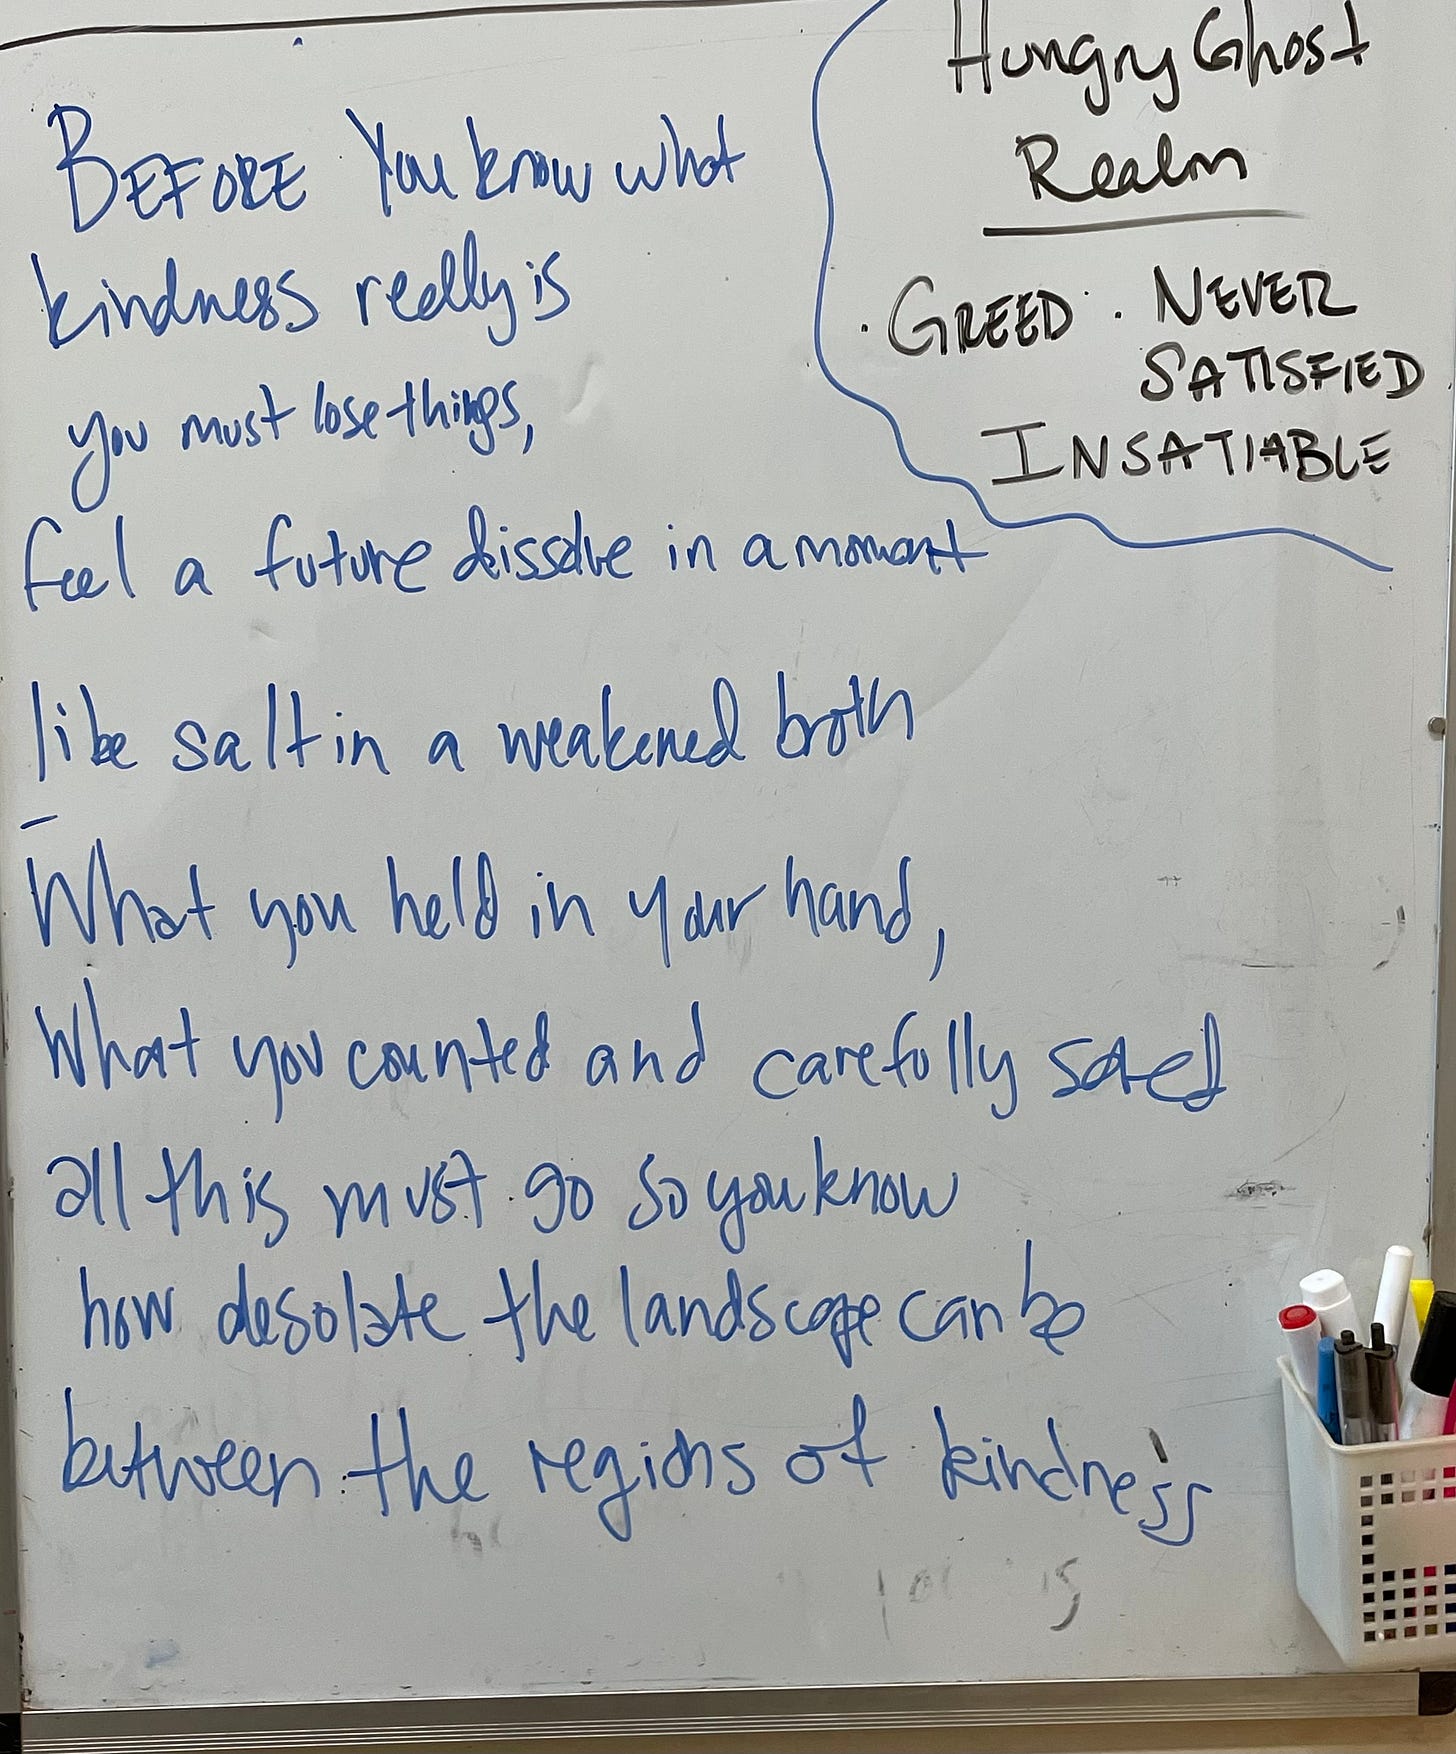 Hungry Ghost
Realm
· GREED · NEVER
SATISFIED
INSATIABLE
BEFORE You know what
kindness really is
you must lose things,
feel a future dissolve in a moment
like salt in a weakened broth
What you held in your hand,
What you counted and carefully saved
all this must go so you know
how desolate the landscape can be
between the regions of kindness